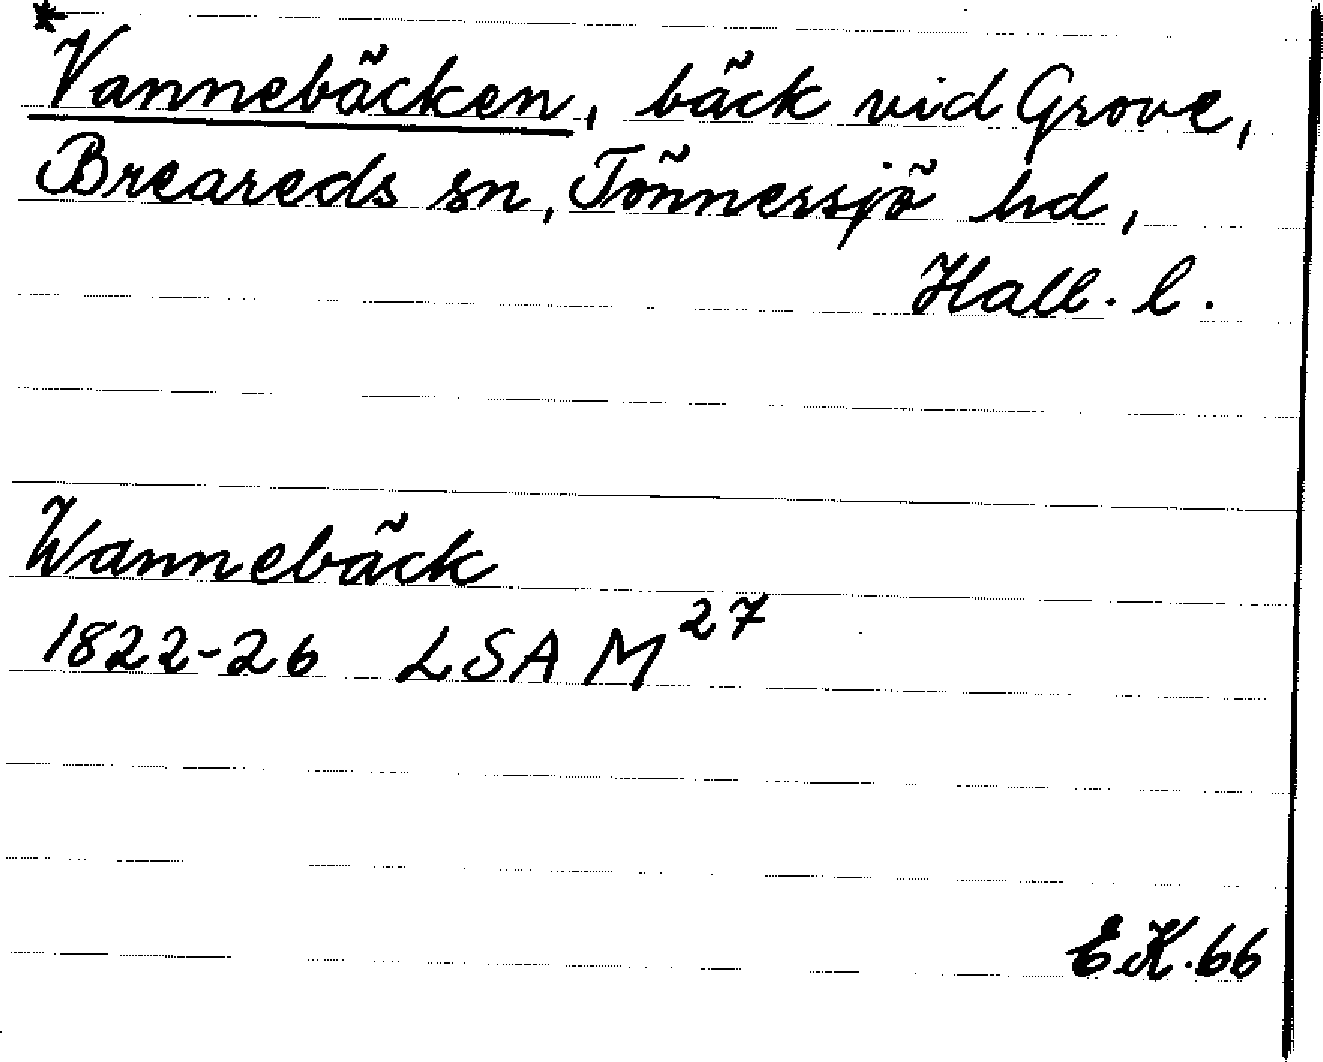 *Vannebäcken, bäck vid Grove,
Breareds sn, Tönnersjö hd,
Hall. l.
Wannebäck
1822-26 LSA M 27
E.K. 66